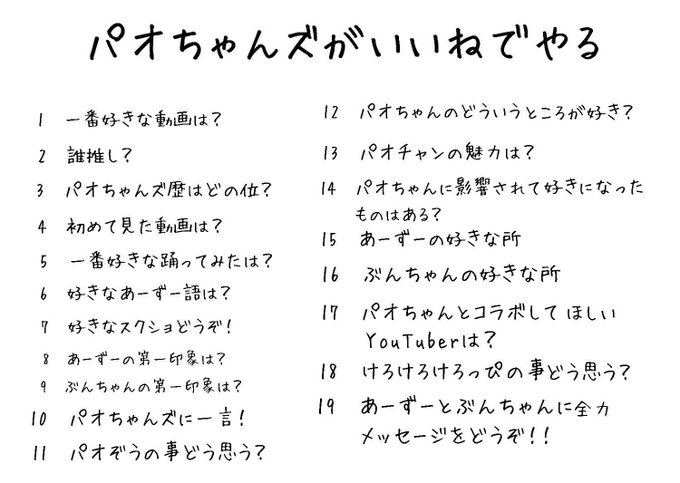 パオちゃんズがいいねでやる
1 一番好きな動画は?
2 誰推し?
3 パオちゃんズ歴はどの位?
4 初めて見た動画は?
5 一番好きな踊ってみたは?
6 好きなあーずー語は?
7 好きなスクショどうぞ!
8 あーずーの第一印象は?
9 ぶんちゃんの第一印象は?
10 パオちゃんズに一言!
11 パオぞうの事どう思う?
12 パオちゃんのどういうところが好き?
13 パオチャンの魅力は?
14 パオちゃんに影響されて好きになった
ものはある?
15 あーずーの好きな所
16 ぶんちゃんの好きな所
17 パオちゃんとコラボして ほしい
YouTuberは?
18 けろけろけろっぴの事どう思う?
19 あーずーとぶんちゃんに全力
メッセージをどうぞ!!